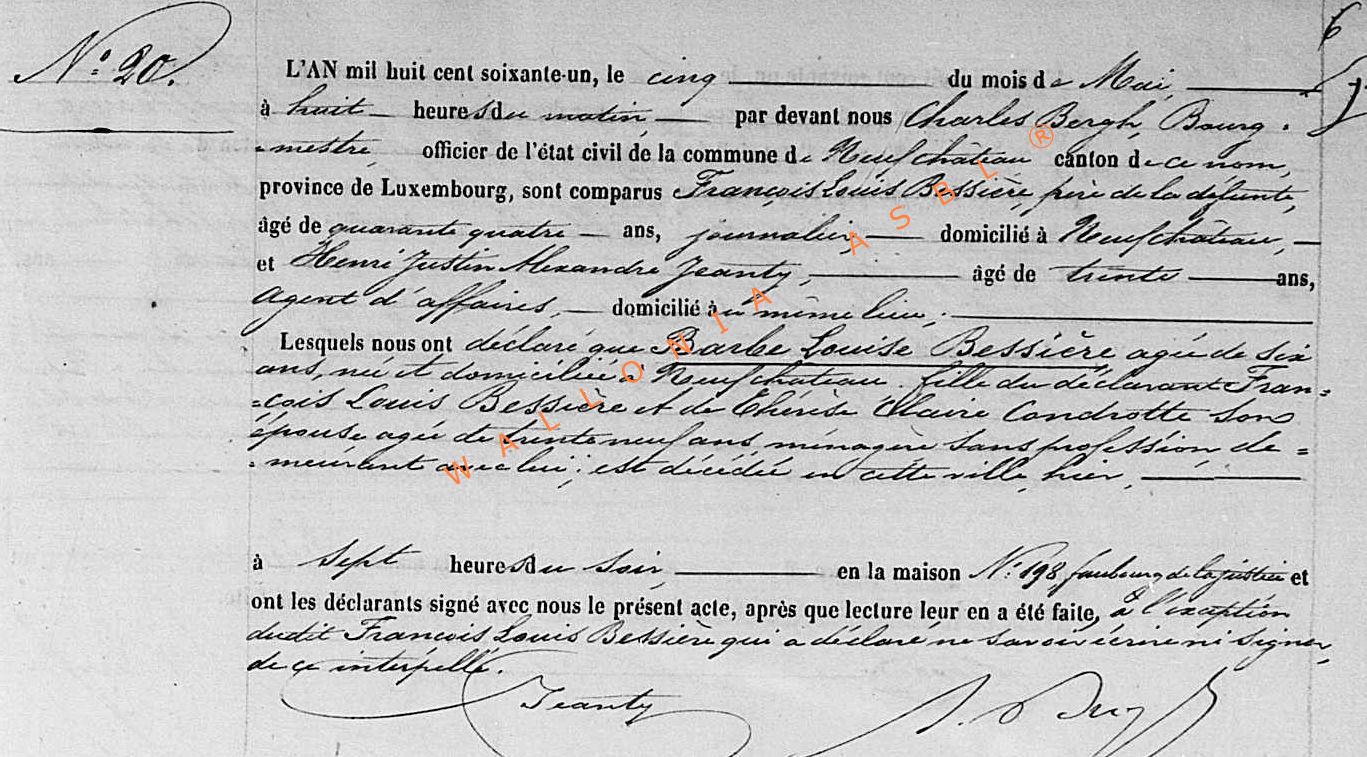 N° 20.
6
L'AN mil huit cent soixante-un, le cinq du mois de Mai,
à huit heures du matin, par devant nous Charles Bergh, Bourg-
=mestre, officier de l'état civil de la commune de Neufchâteau canton de ce nom,
province de Luxembourg, sont comparus François Louis Bessière, père de la défunte,
âgé de quarante quatre ans, journalier domicilié à Neufchâteau,
et Henri Justin Alexandre Jeanty, âgé de trente ans,
agent d'affaires, domicilié au même lieu;
Lesquels nous ont déclaré que Barbe Louise Bessière agée de six
ans, née et domiciliée à Neufchateau fille du déclarant Fran=
=çois Louis Bessière et de Thérèse Claire Condrotte son
épouse agée de trente neuf ans, ménagère sans profession, de=
=meurant avec lui; est décédée en cette ville, hier,
à sept heures du soir, en la maison N° 198, faubourg de la justice et
ont les déclarants signé avec nous le présent acte, après que lecture leur en a été faite, à l'exception
dudit François Louis Bessière qui a déclaré ne savoir écrire ni signer,
de ce interpellé.
Jeanty
WALLONIA ASBL ®